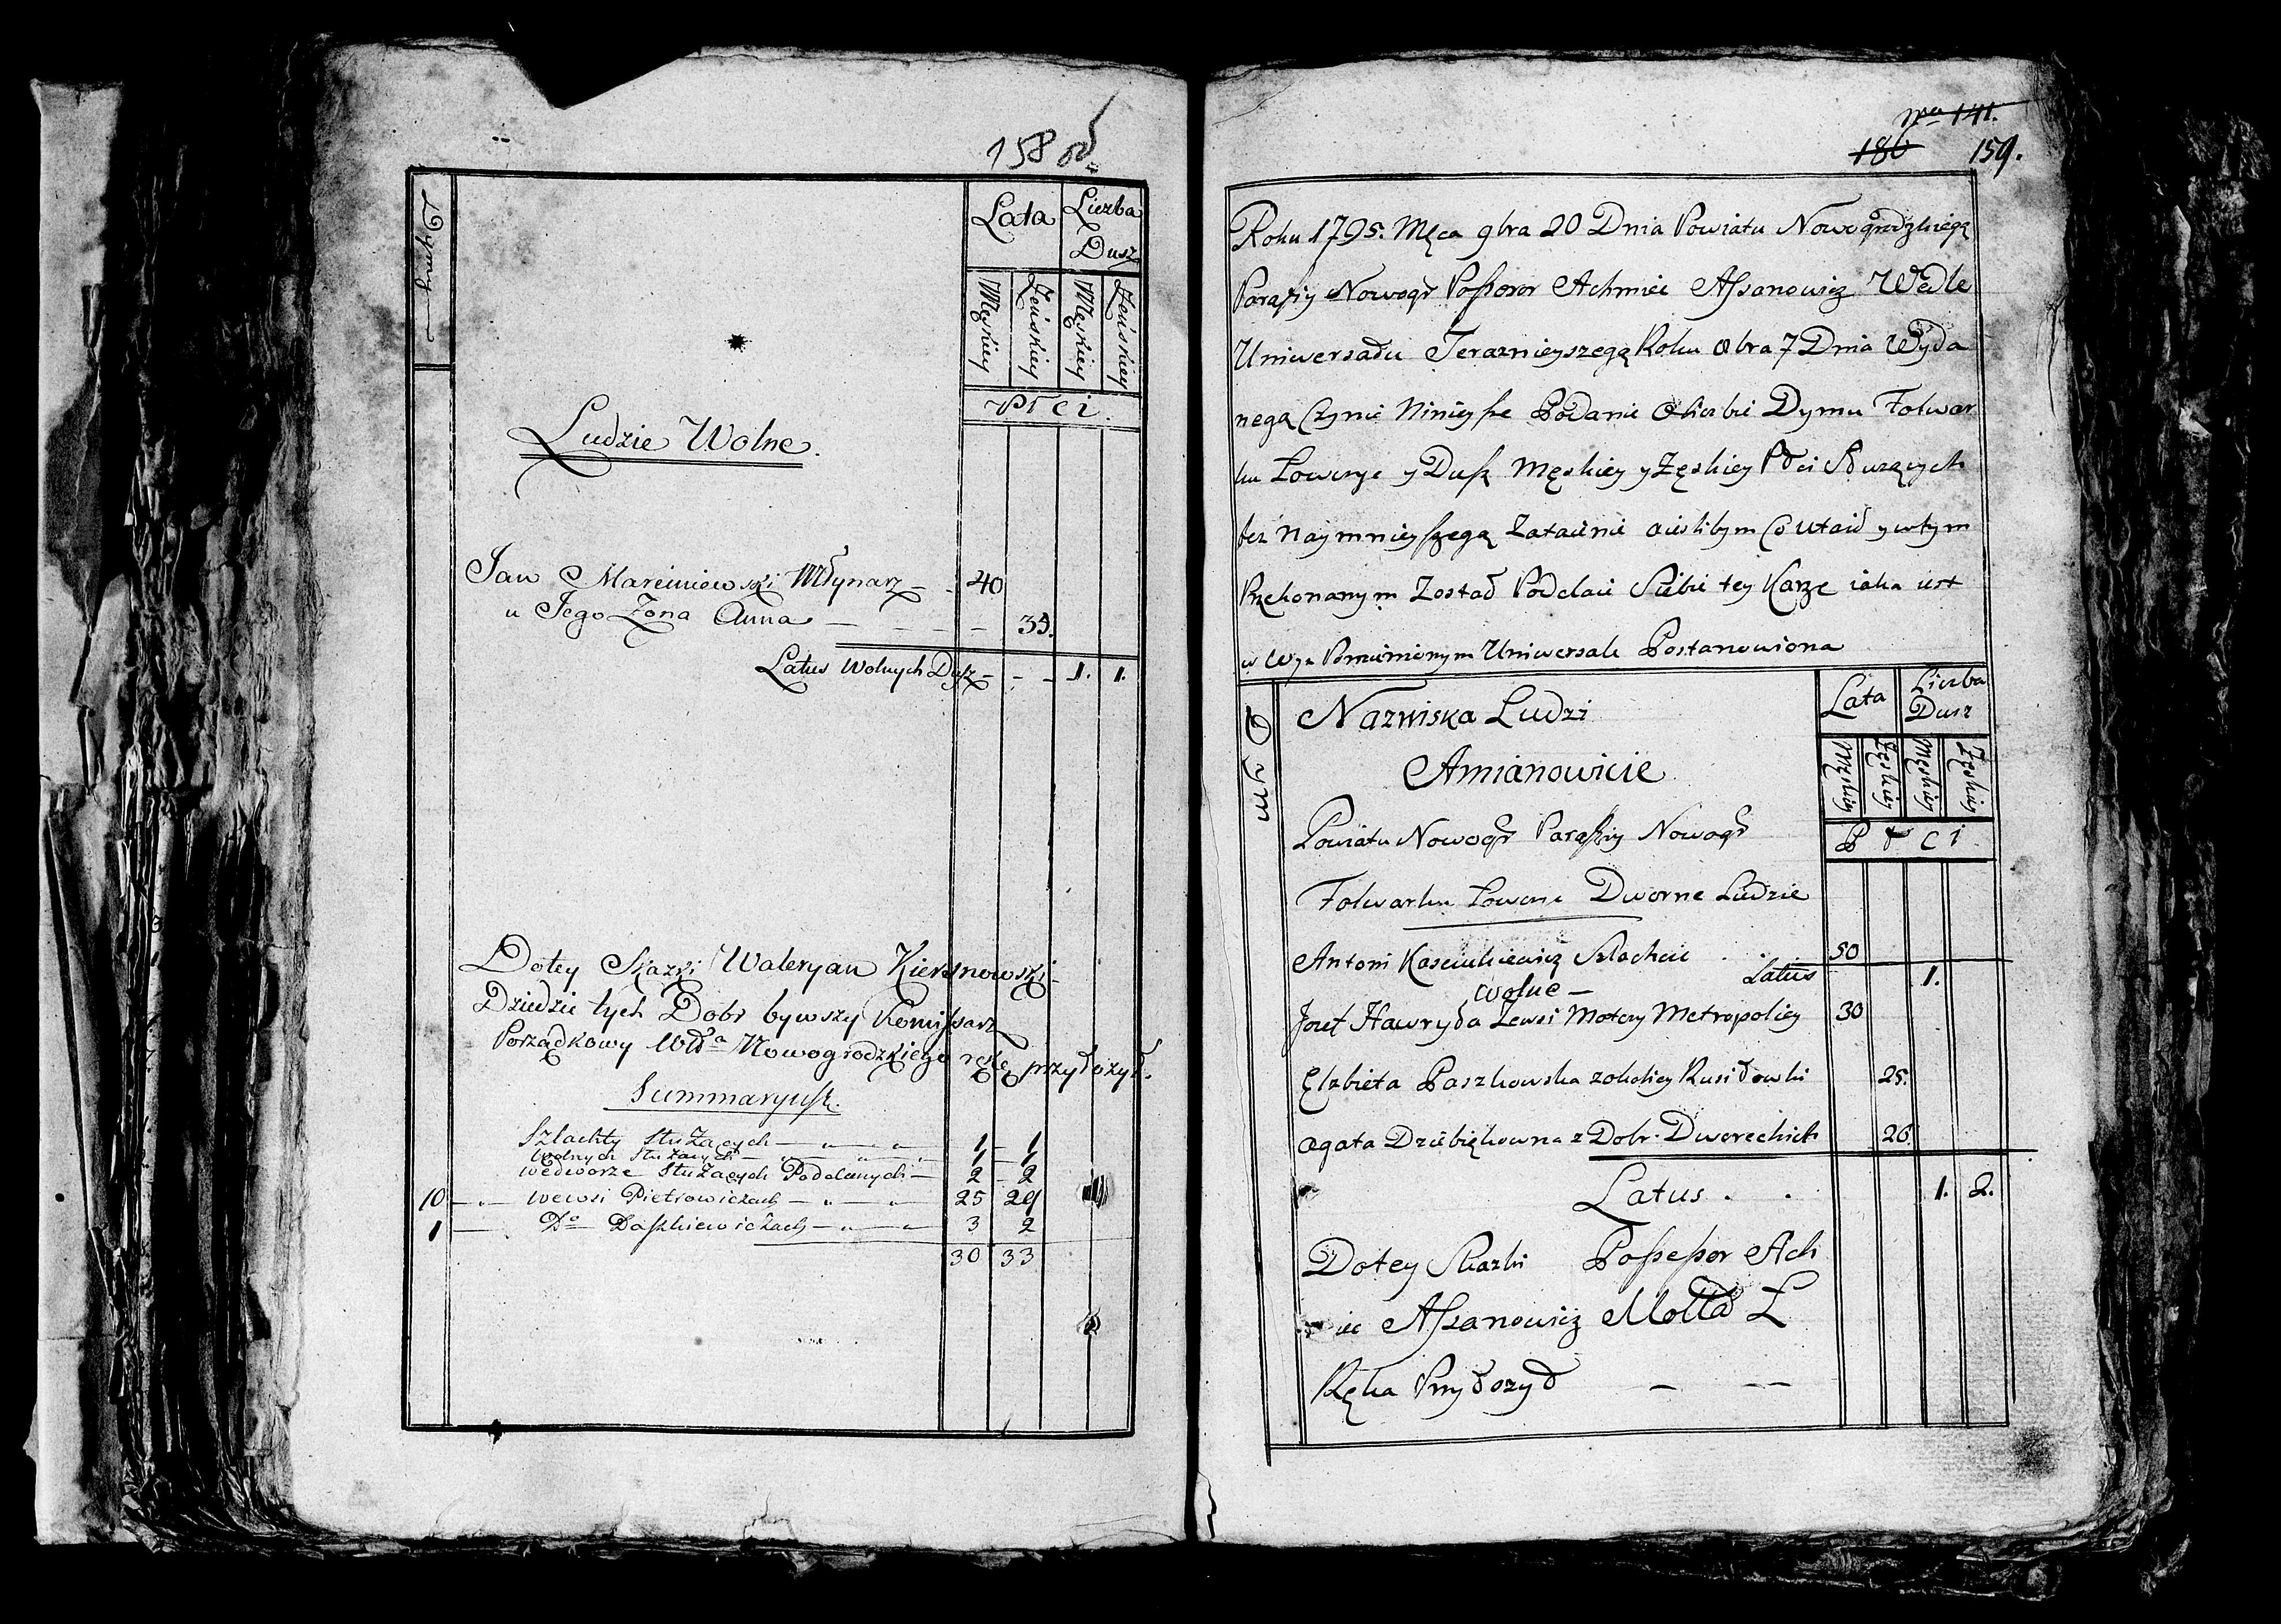 158 od.
Dymy
Lata
Liczba Dusz
Męskiey
Zeńskiey
Męskiey
Zeńskiey
Płci.
Ludzie Wolne.
Jan Marciniewski Młynarz - - 40
u Jego Zona Anna - - - - 35.
Latus Wolnych Dusz - - - 1. 1.
Dotey Skazki Waleryan Kiersnowski
Dziedzic tych Dobr bywszy Komissarz
Porządkowy Wdª Nowogrodzkiego rękę przyłożył.
Summaryusz.
Szlachty Służących 1 - 1
Wolnych Służących 1 - 1
Wedworze Służących Poddanych 2 - 2
10 wewsi Pietrowiczach 25 29
1 Dº Daszkiewiczach 3 2
30 33
Nro 141.
186 159.
Roku 1795. Męca 9bra 20 Dnia Powiatu Nowogrodzkiegą
Parafiy Nowogr Possesor Achmiec Assanowicz Wedle
Uniwersadu Teraznieyszegą Roku 8bra 7 Dnia Wyda
negą Czynie Ninieysze Podanie Oliczbie Dymu Folwar
ku Lowczyc y Dusz Męskiey y Zęskiey Płci Służących
bez Naymnieyszegą Zataienie aieslibym Co Utaił ywtym
Przekonanym Został Poddaie Siebie tey Karze iaka iest
w Wyz Pomienionym Uniwersale Postanowiona
Dym
Nazwiska Ludzi
Amianowicie
Lata
Liczba Dusz
Męskiey
Zęskiey
Męskiey
Zęskiey
Płci
Powiatu Nowogr Parafiy Nowogr
Folwarku Lowczyc Dworne Ludzie
Antoni Kasciukiewicz Szlachcic . . 50
Latus 1.
Wolne —
Jozef Hawryła Zewsi Motczy Metropoliey 30
Elzbieta Paszkowska zokoliey Rusiłowki 25.
Agata Dziebiękowna z Dobr. Dworeckich 26.
Latus . . 1. 2.
Dotey Skazki Possessor Ach
iec Assanowicz Mołła Ł
Ręka Przyłozył — — —